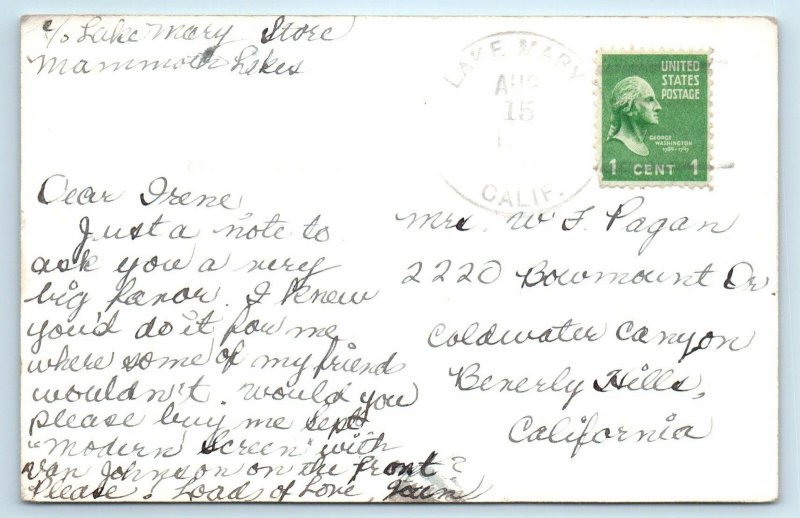 c/o Lake Mary Store
Mammoth Lakes
LAKE MARY
AUG
15
CALIF.
UNITED
STATES
POSTAGE
GEORGE
WASHINGTON
1789-1797
1 CENT 1
Dear Irene
Just a note to
ask you a very
big favor. I knew
you'd do it for me
where some of my friend
wouldn't. would you
please buy me Sept
"Modern Screen" with
Van Johnson on the front?
Please. Loads of Love,
Mrs. W F Pagan
2220 Bowmount Dr.
Coldwater Canyon
Beverly Hills,
California